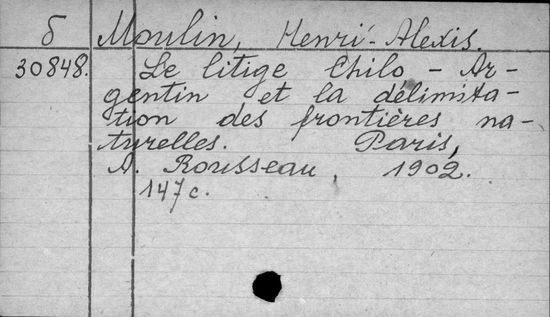 δ Moulin, Henri-Alexis.
30848. Le litige Chilo-Ar-
gentin et la délimita-
tion des frontières na-
turelles. Paris,
A. Rousseau, 1902.
147 c.